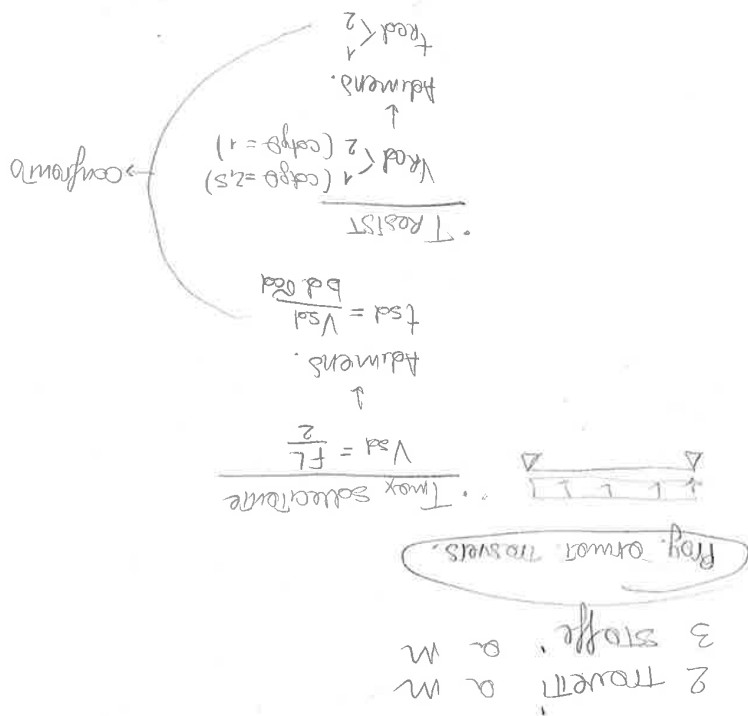 2 travetti a m
3 staffe a m
Prog. armat. trasvers.
• Tmax sollecitante
Vsd = FL/2
↓
Adimens.
tsd = Vsd / bd σcd
• T RESIST
VRed < 1 (cotgθ = 2,5)
2 (cotgθ = 1)
↓
Adimens.
tRed < 1
2
→ confronto